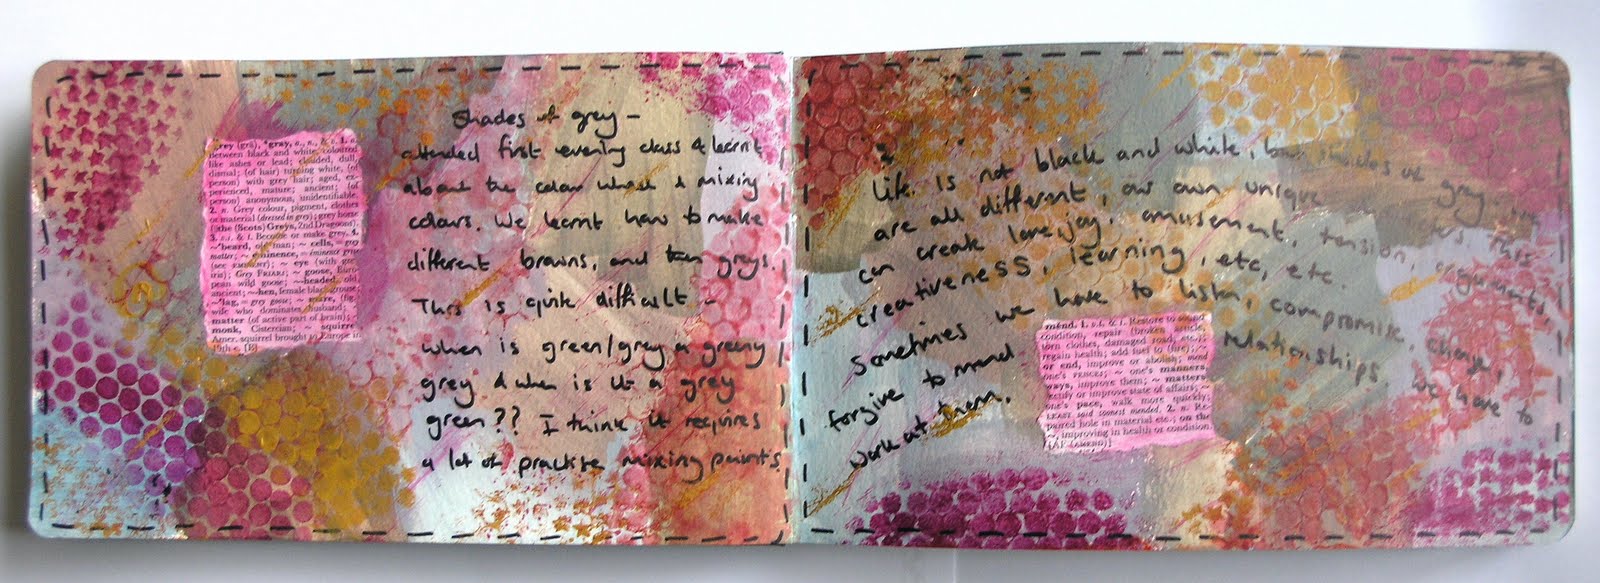 grey (grā), *gray, a., n., & v. 1. a.
between black and white, coloured
like ashes or lead; clouded, dull
dismal; (of hair) turning white, (of
person) with grey hair; aged, ex-
perienced, mature; ancient; (of
person) anonymous, unidentifiable
2. n. Grey colour, pigment, clothes
or material (dressed in grey); grey horse
(the (Scots) Greys, 2nd Dragoons).
3. v.t. & i. Become or make grey. 4.
~'beard, old man; ~ cells, = grey
matter; ~ eminence, = éminence grise
(see EMINENCE); ~ eye (with grey
iris); Grey FRIARS; ~ goose, Euro-
pean wild goose; ~-headed, old,
ancient; ~-hen, female black grouse;
~'lag, = grey goose; ~ mare, (fig.
wife who dominates husband; ~
matter (of active part of brain);
monk, Cistercian; ~ squirrel
Amer. squirrel brought to Europe in
19th c. [E]
Shades of grey –
attended first evening class & learnt
about the colour wheel & mixing
colours. We learnt how to make
different browns, and then greys.
This is quite difficult –
when is green/grey a greeny
grey & when is it a grey
green?? I think it requires
a lot of practise mixing paints
Life is not black and white, but shades of grey, we
are all different, our own unique This
can create love, joy, amusement, tension, arguments,
creativeness, learning, etc, etc.
Sometimes we have to listen, compromise, change,
forgive to mend relationships. We have to
work at them.
mend. 1. v.t. & i. Restore to sound
condition, repair (broken article,
torn clothes, damaged road, etc.);
regain health; add fuel to (fire); ~
or end, improve or abolish; mend
one's FENCES; ~ one's manners,
ways, improve them; ~ matters
rectify or improve state of affairs; ~
one's pace, walk more quickly;
LEAST said soonest mended. 2. n. Re-
paired hole in material etc.; on the
~, improving in health or condition
[AF (AMEND)]